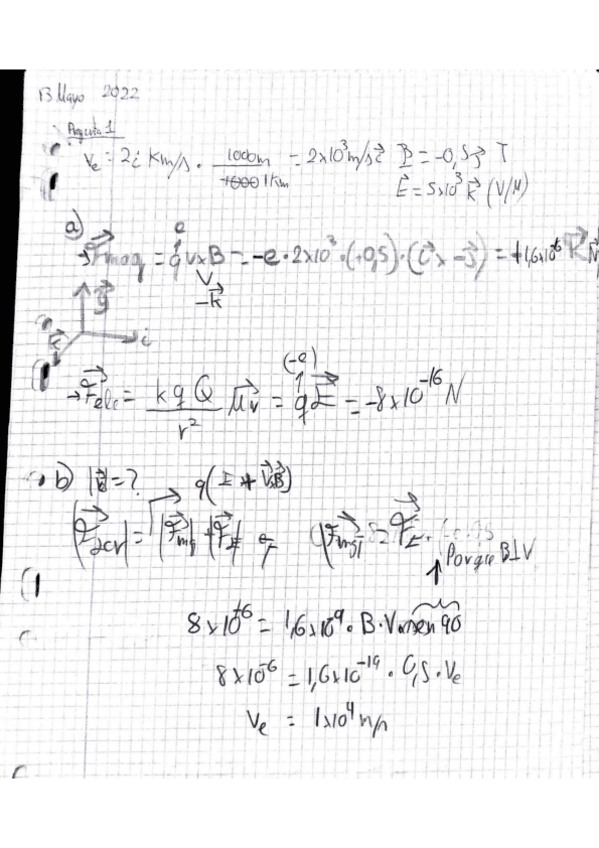 13 Mayo 2022
Pregunta 1
Ve = 2i Km/s · 1000m / 1Km = 2x10³ m/s i⃗ B⃗ = -0,5 j⃗ T
E⃗ = 5x10³ k⃗ (V/M)
a)
e
→ F⃗mag = q v x B = -e · 2x10³ · (+0,5) · (i⃗ x -j⃗) = +1,6x10⁻¹⁶ k⃗ N
-k⃗
j⃗
i
k⃗
(-e)
→ F⃗ele = k q Q / r² μ⃗r = q E⃗ = -8x10⁻¹⁶ N
b) |v⃗| = ? q(E + v⃗xB⃗)
= |F⃗mg| + |F⃗E|
Porque B⊥V
8x10⁻¹⁶ = 1,6x10⁻¹⁹ · B · V · sen 90
8x10⁻⁶ = 1,6x10⁻¹⁹ · 0,5 · Ve
Ve = 1x10⁴ m/s